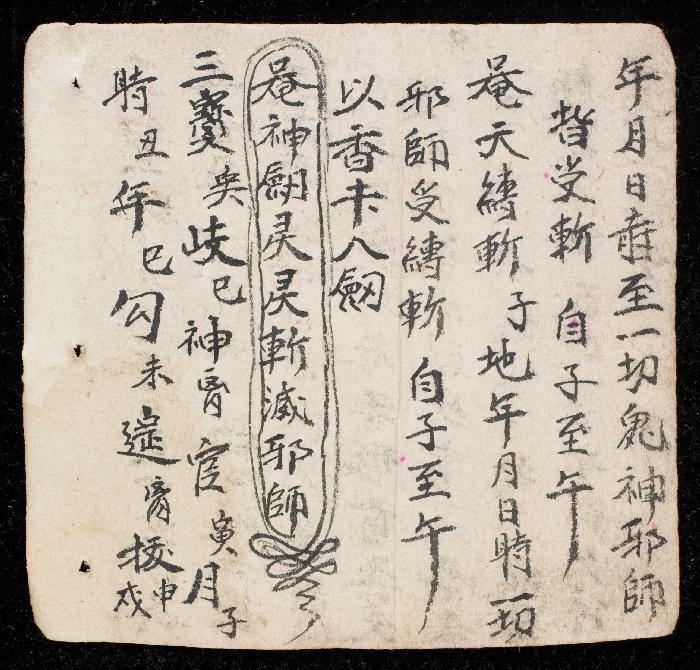 年月日時至一切鬼神邪師
皆受斬 自子至午
唵天縛斬子地年月日時一切
邪師受縛斬 自子至午
以香卡八劔
唵神劔灵灵斬滅邪師
三 歧巳神 寅月子
時丑年巳勾未 申戌